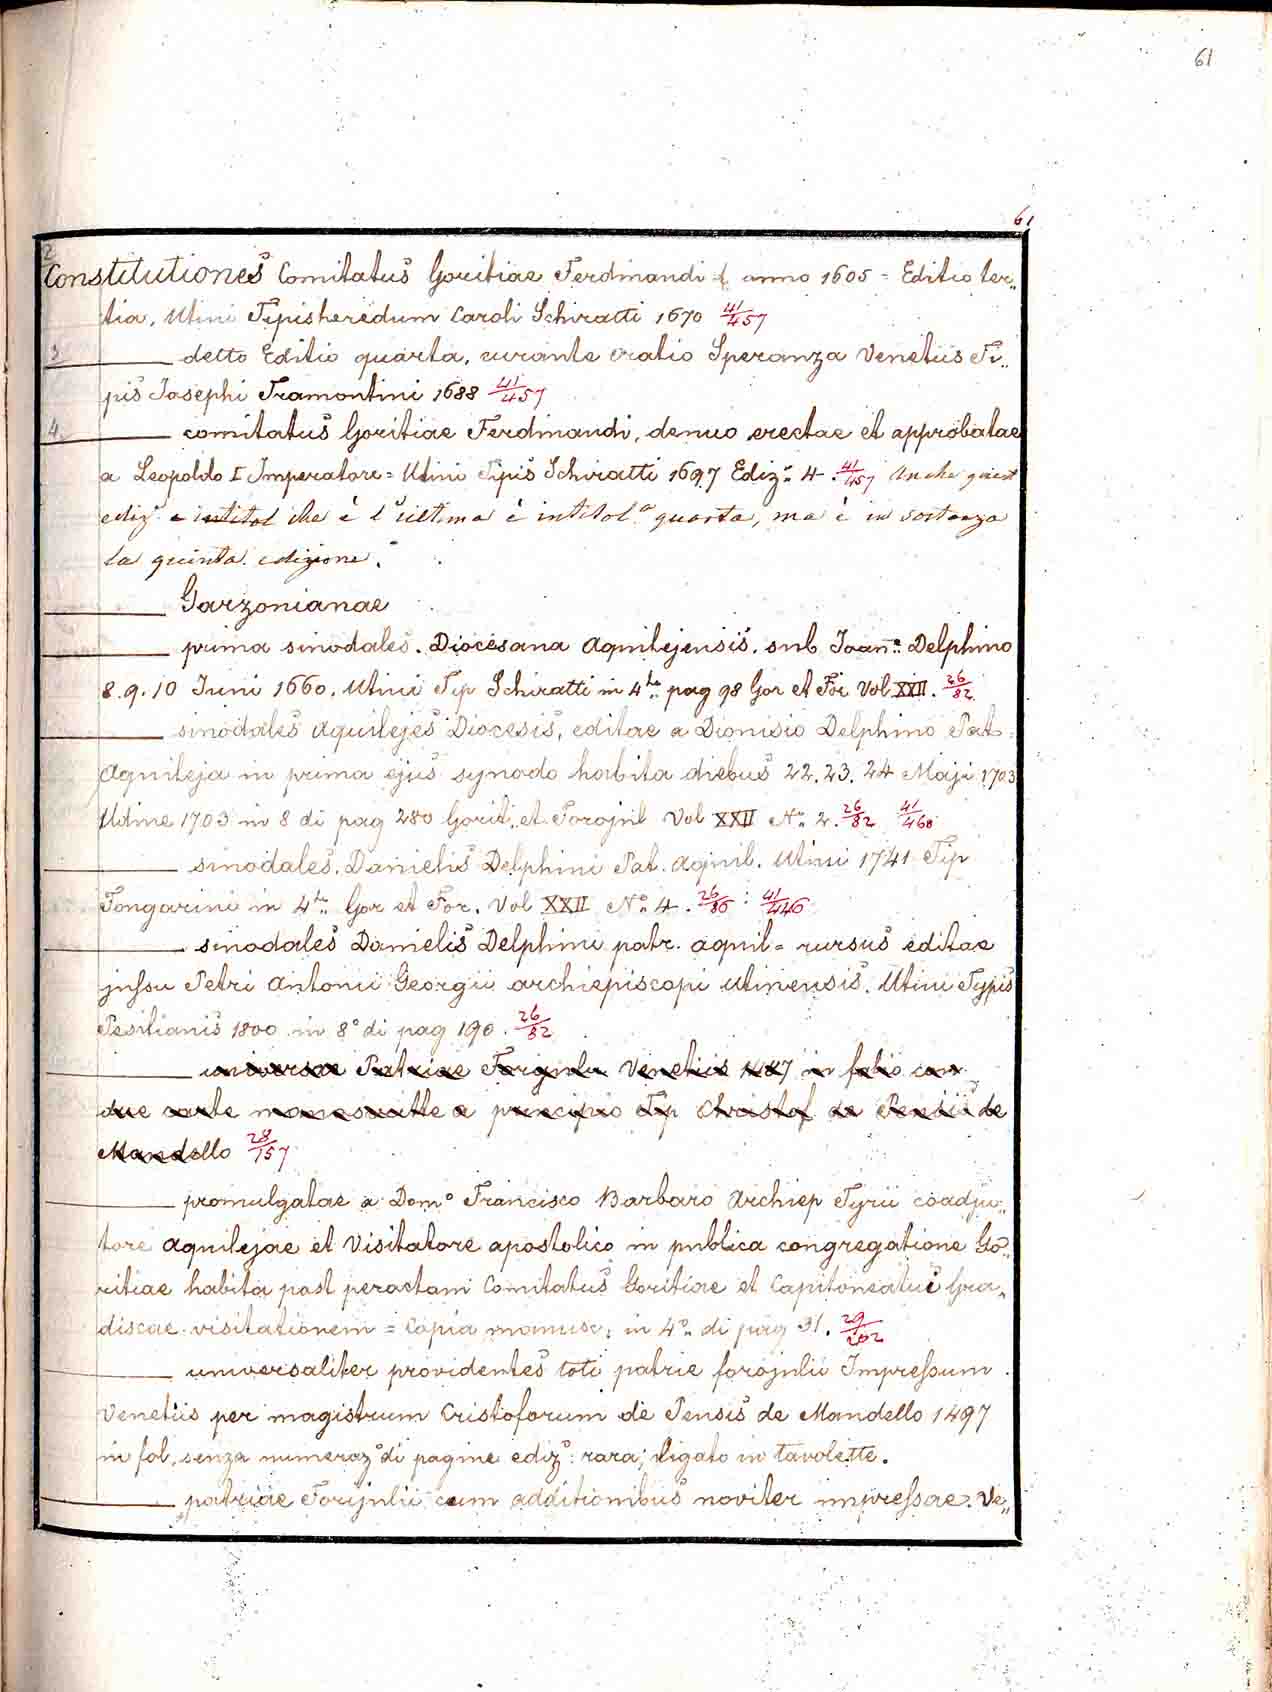 61
61
2
Constitutiones Comitatus Goritiae Ferdinandi anno 1605 = Editio ter„
tia, Utini Tipis heredum Caroli Schiratti 1670 41/457
3 ______ detto Editio quarta, curante Oratio Speranza Venetiis Ti„
pis Josephi Tramontini 1688 41/457
4 ______ comitatus Goritiae Ferdinandi, denuo erectae et approbatae
a Leopoldo I Imperatore = Utini Tipis Schiratti 1697 Ediz.n 4. 41/457 Anche quest
ediz.e che è l'ultima è intitol.a quarta, ma è in sostanza
la quinta edizione.
______ Garzonianae
______ prima sinodales. Diocesana Aquilejensis. sub Joan.e Delphino
8.9.10 Juni 1660, Utini Tip Schiratti in 4.to pag 98 Gor et For Vol XXII. 26/82
______ sinodales Aquilejes Diocesis, editae a Dionisio Delphino Pat=
Aquileja in prima ejus synodo habita diebus 22.23.24 Maji 1703
Udine 1703 in 8 di pag 280 Gorit. et Forojul Vol XXII N.o 2. 26/82 41/460
______ sinodales. Danielis Delphini Pat. Aqnil. Utini 1741 Tip
Fongarini in 4.to Gor et For. Vol XXII N.o 4. 26/86 : 41/446
______ sinodales Danielis Delphini patr. aquil = rursus editae
jussu Petri Antonii Georgii archiepiscopi Utinensis. Utini Typis
Pesilianis 1800 in 8° di pag 190. 26/82
______ universae Patriae Forijulii Venetiis 1487 in folio con
due carte manoscritte a principio Tip Christof de Pensiis de
Mandello 28/157
______ promulgatae a Dom.o Francisco Barbaro Archiep Tyrii coadju„
tore Aquilejae et Visitatore apostolico in publica congregatione Go„
ritiae habita post peractam Comitatus Goritiae et Capitoneatus Gra„
discae visitationem = Copia manusc. in 4.o di pag 31. 29/202
______ universaliter providentes toti patrie forojulii Impressum
Venetiis per magistrum Cristoforum de Pensis de Mandello 1497
in fol, senza numeraz.e di pagine ediz.e: rara; ligato in tavolette.
______ patriae Forijulii cum additionibus noviter impressae. Ve„